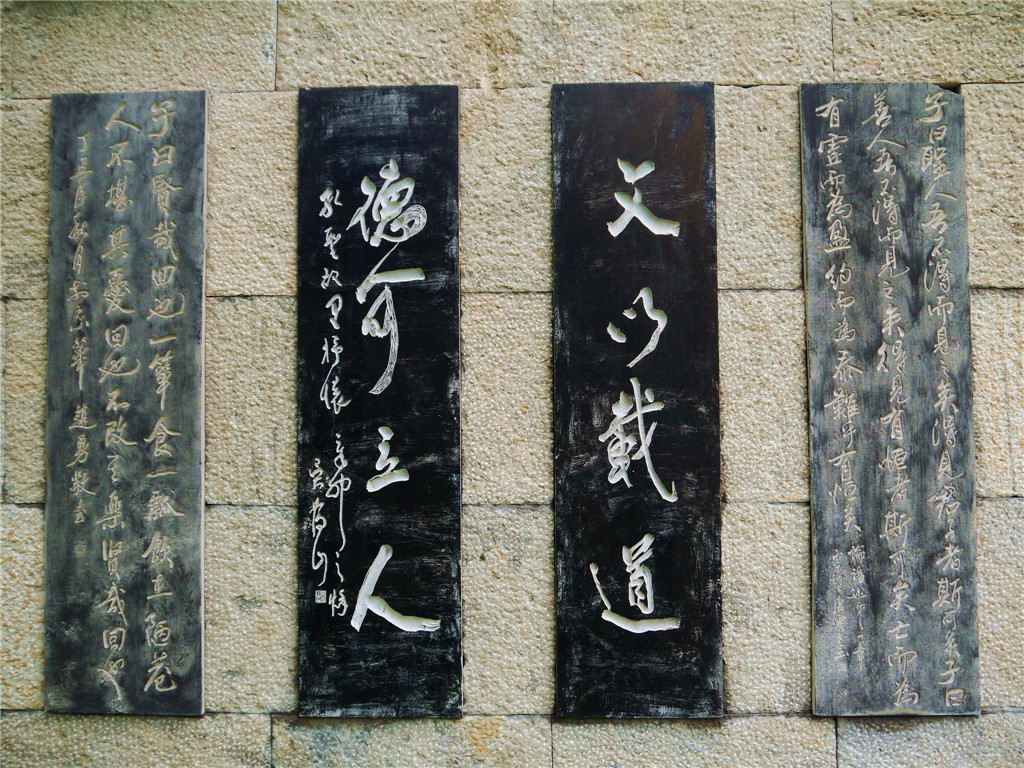 子曰聖人吾不得而見之矣得見君子者斯可矣子曰
善人吾不得而見之矣得見有恒者斯可矣亡而為
有虛而為盈約而為泰難乎有恒矣
文以載道
德可立人
孔聖故里 辛卯之
子曰賢哉回也一簞食一瓢飲在陋巷
人不堪其憂回也不改其樂賢哉回也
趙勇敬書